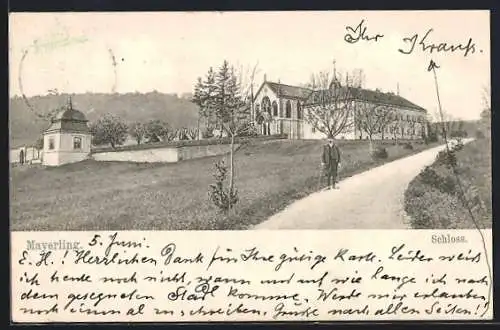 Ihr
Krauß
Mayerling.
5. Juni
Schloss.
E. H.! Herzlichen Dank für Ihre gütige Karte. Leider weiß
ich heute noch nicht, wann und auf wie lange ich nach
dem gesegneten Stadt komme. Werde mir erlauben
noch einmal zu schreiben. Grüße nach allen Seiten!